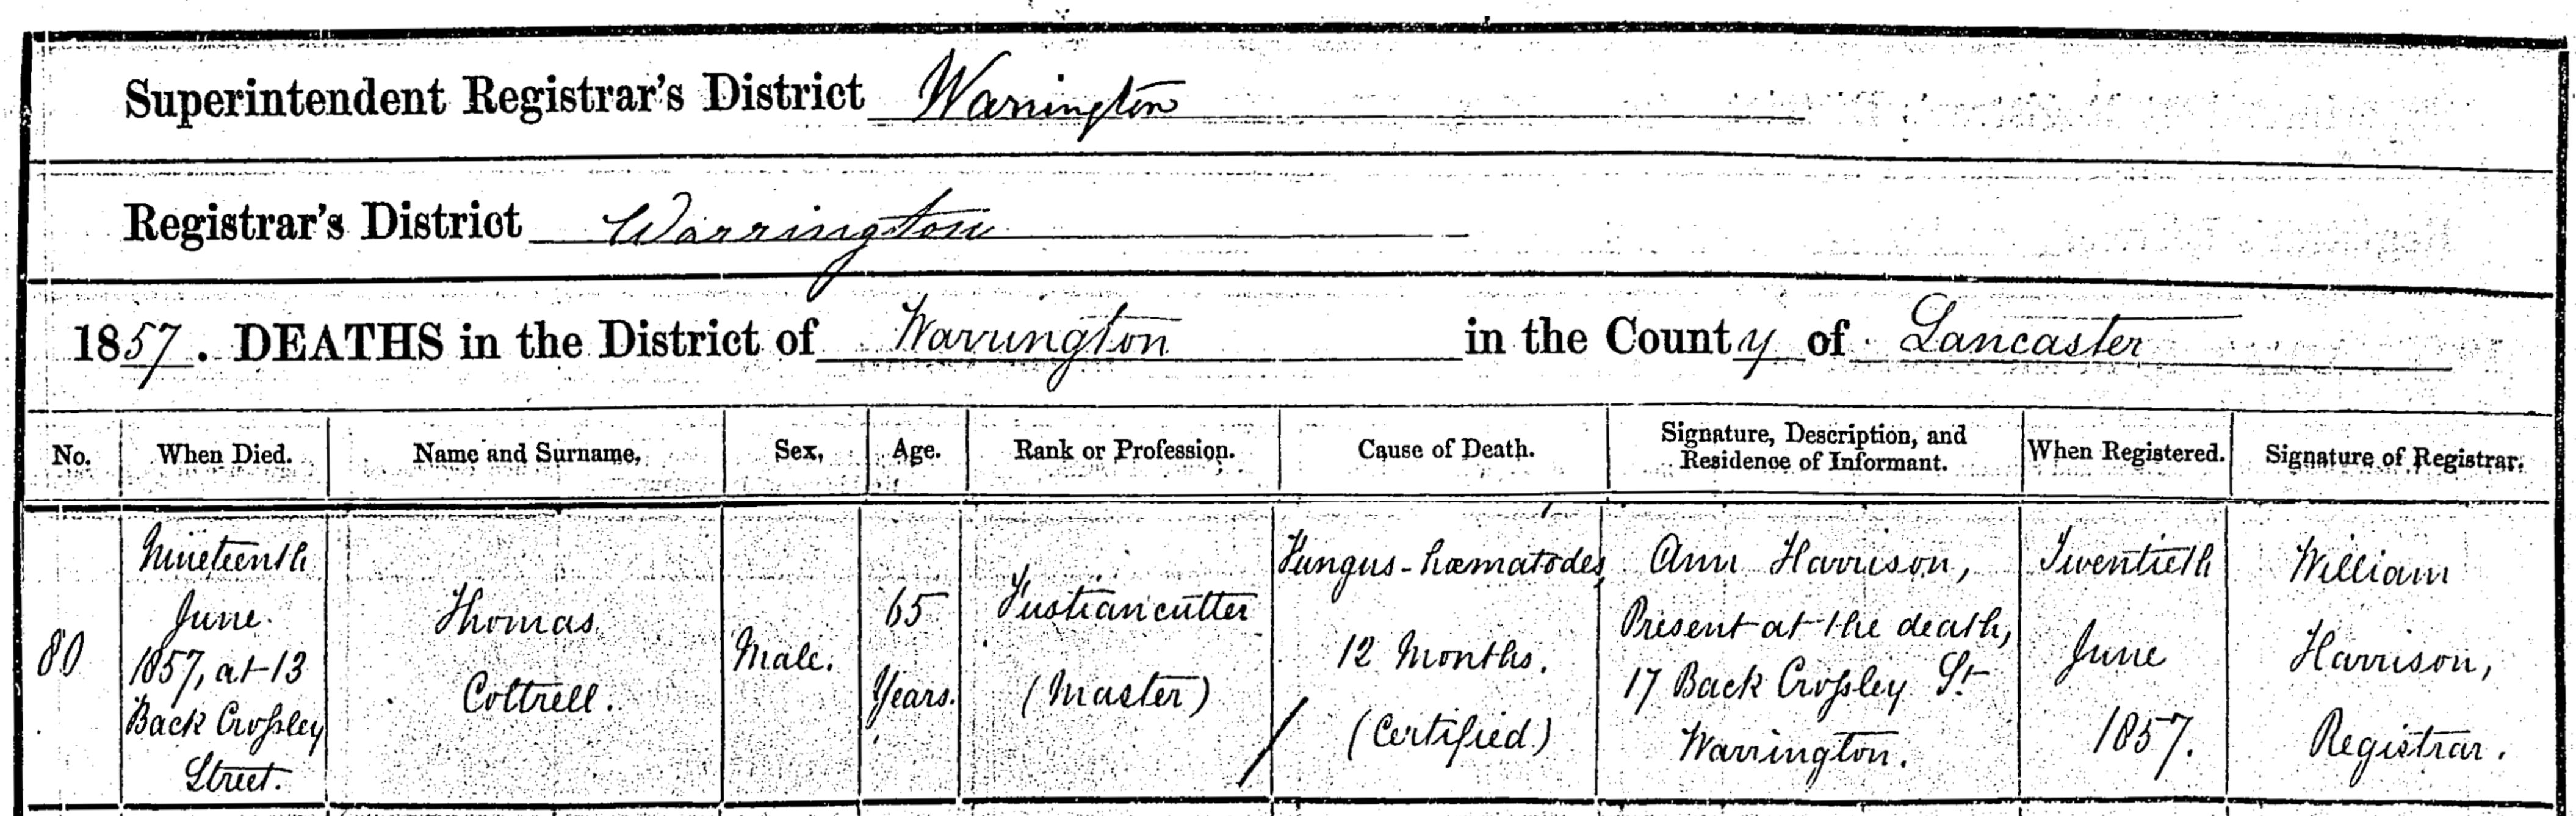 Superintendent Registrar's District Warrington
Registrar's District Warrington
1857. DEATHS in the District of Warrington in the County of Lancaster
No. When Died. Name and Surname. Sex. Age. Rank or Profession. Cause of Death. Signature, Description, and Residence of Informant. When Registered. Signature of Registrar.
80
Nineteenth
June
1857, at 13
Back Croſsley
Street.
Thomas
Cottrell.
Male.
65
Years.
Fustian cutter
(Master)
Fungus-hæmatodes,
12 Months.
(Certified)
Ann Harrison,
Present at the death,
17 Back Croſsley St
Warrington.
Twentieth
June
1857.
William
Harrison,
Registrar.